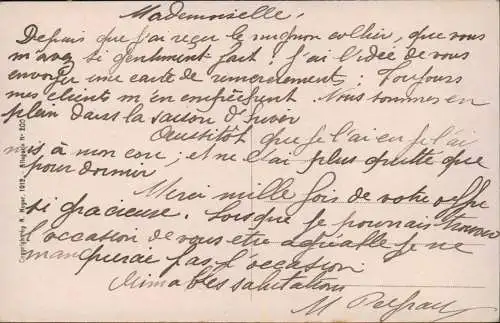 Mademoiselle!
Depuis que j'ai reçu le mignon collier, que vous
m'avez si gentiment fait! j'ai l'idée de vous
envoyer une carte de remerciements; Toujours
mes clients m'en empêchent. Nous sommes en
plein dans la saison d'hiver
Aussitôt que je l'ai eu je l'ai
mis à mon cou, et ne l'ai plus quitté que
pour dormir
Merci mille fois de votre offre
si gracieuse. Lorsque je pourrais trouver
l'occasion de vous être agréable je ne
manquerai pas l'occasion
Aimables salutations
M
Copyright by A. Hager, 1912 - Allegorie Nr 200